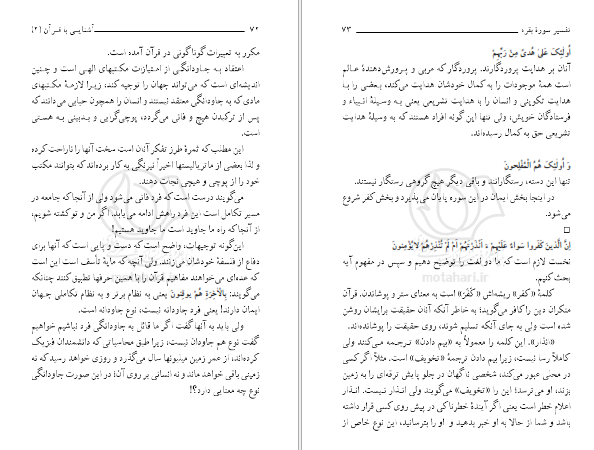 ۷۲ آشنایی با قرآن (۲)
مکرر به تعبیرات گوناگونی در قرآن آمده است.
اعتقاد به جاودانگی از امتیازات مکتبهای الهی است و چنین
اندیشه‌ای است که می‌تواند جهان را توجیه کند، زیرا لازمهٔ مکتبهای
مادی که به جاودانگی معتقد نیستند و انسان را همچون حبابی می‌دانند که
پس از ترکیدن هیچ و فانی می‌گردد، پوچی‌گرایی و بدبینی به هستی
است.
این مطلب که ثمرهٔ طرز تفکر آنان است سخت آنها را ناراحت کرده
و لذا بعضی از ماتریالیستها اخیراً نیرنگی به کار برده‌اند که بتوانند مکتب
خود را از پوچی و هیچی نجات دهند.
می‌گویند درست است که فرد فانی می‌شود ولی از آنجا که جامعه در
مسیر تکامل است این فرد راهش ادامه می‌یابد. اگر من و تو کشته شویم،
از آنجا که راه ما جاوید است ما جاوید هستیم!
این‌گونه توجیهات، واضح است که دست و پایی است که آنها برای
دفاع از فلسفهٔ خودشان می‌زنند. ولی آنچه که مایهٔ تأسف است این است
که عده‌ای می‌خواهند مفاهیم قرآن را با همین حرفها تطبیق کنند چنانکه
می‌گویند: بِالْآخِرَةِ هُمْ یوقِنونَ یعنی به نظام برتر و به نظام تکاملی جهان
ایمان دارند! یعنی فرد جاودانه نیست، نوع جاودانه است.
ولی باید به آنها گفت اگر ما قائل به جاودانگی فرد نباشیم خواهیم
گفت نوع هم جاودان نیست، زیرا طبق محاسباتی که دانشمندان فیزیک
کرده‌اند، از عمر زمین میلیونها سال می‌گذرد و روزی خواهد رسید که نه
زمینی باقی خواهد ماند و نه انسانی بر روی آن؛ در این صورت جاودانگی
نوع چه معنایی دارد؟!
تفسیر سورهٔ بقره ۷۳
اُولٰئِکَ عَلیٰ هُدیً مِنْ رَبِّهِمْ
آنان بر هدایت پروردگارند. پروردگار که مربی و پرورش‌دهندهٔ عالم
است همهٔ موجودات را به کمال خودشان هدایت می‌کند، بعضی را با
هدایت تکوینی و انسان را با هدایت تشریعی یعنی به وسیلهٔ انبیاء و
فرستادگان خویش، ولی تنها این گونه افراد هستند که به وسیلهٔ هدایت
تشریعی حق به کمال رسیده‌اند.
وَ اُولٰئِکَ هُمُ الْمُفْلِحونَ
تنها این دسته، رستگارانند و باقی دیگر هیچ گروهی رستگار نیستند.
در اینجا بخش ایمان در این سوره پایان می‌پذیرد و بخش کفر شروع
می‌شود.
اِنَّ الَّذینَ کَفَروا سَواءٌ عَلَیْهِمْ ءَ اَنْذَرْتَهُمْ اَمْ لَمْ تُنْذِرْهُمْ لایُؤْمِنونَ
نخست لازم است که ما دو لغت را توضیح دهیم و سپس در مفهوم آیه
بحث کنیم.
کلمهٔ «کفر» ریشه‌اش «کَفْر» است به معنای ستر و پوشاندن. قرآن
منکران دین را کافر می‌گوید؛ به خاطر آنکه آنان حقیقت برایشان روشن
شده است ولی به جای آنکه تسلیم شوند، روی حقیقت را پوشانده‌اند.
«انذار». این کلمه را معمولاً به «بیم دادن» ترجمه می‌کنند ولی
کاملاً رسا نیست، زیرا بیم دادن ترجمهٔ «تخویف» است. مثلاً اگر کسی
در محلی عبور می‌کند، شخصی ناگهان در جلو پایش ترقه‌ای را به زمین
بزند، او می‌ترسد؛ این را «تخویف» می‌گویند ولی انذار نیست. انذار
اعلام خطر است یعنی اگر آیندهٔ خطرناکی در پیش روی کسی قرار داشته
باشد و شما از حالا به او خبر بدهید و او را بترسانید، این نوع خاص از
motahari.ir